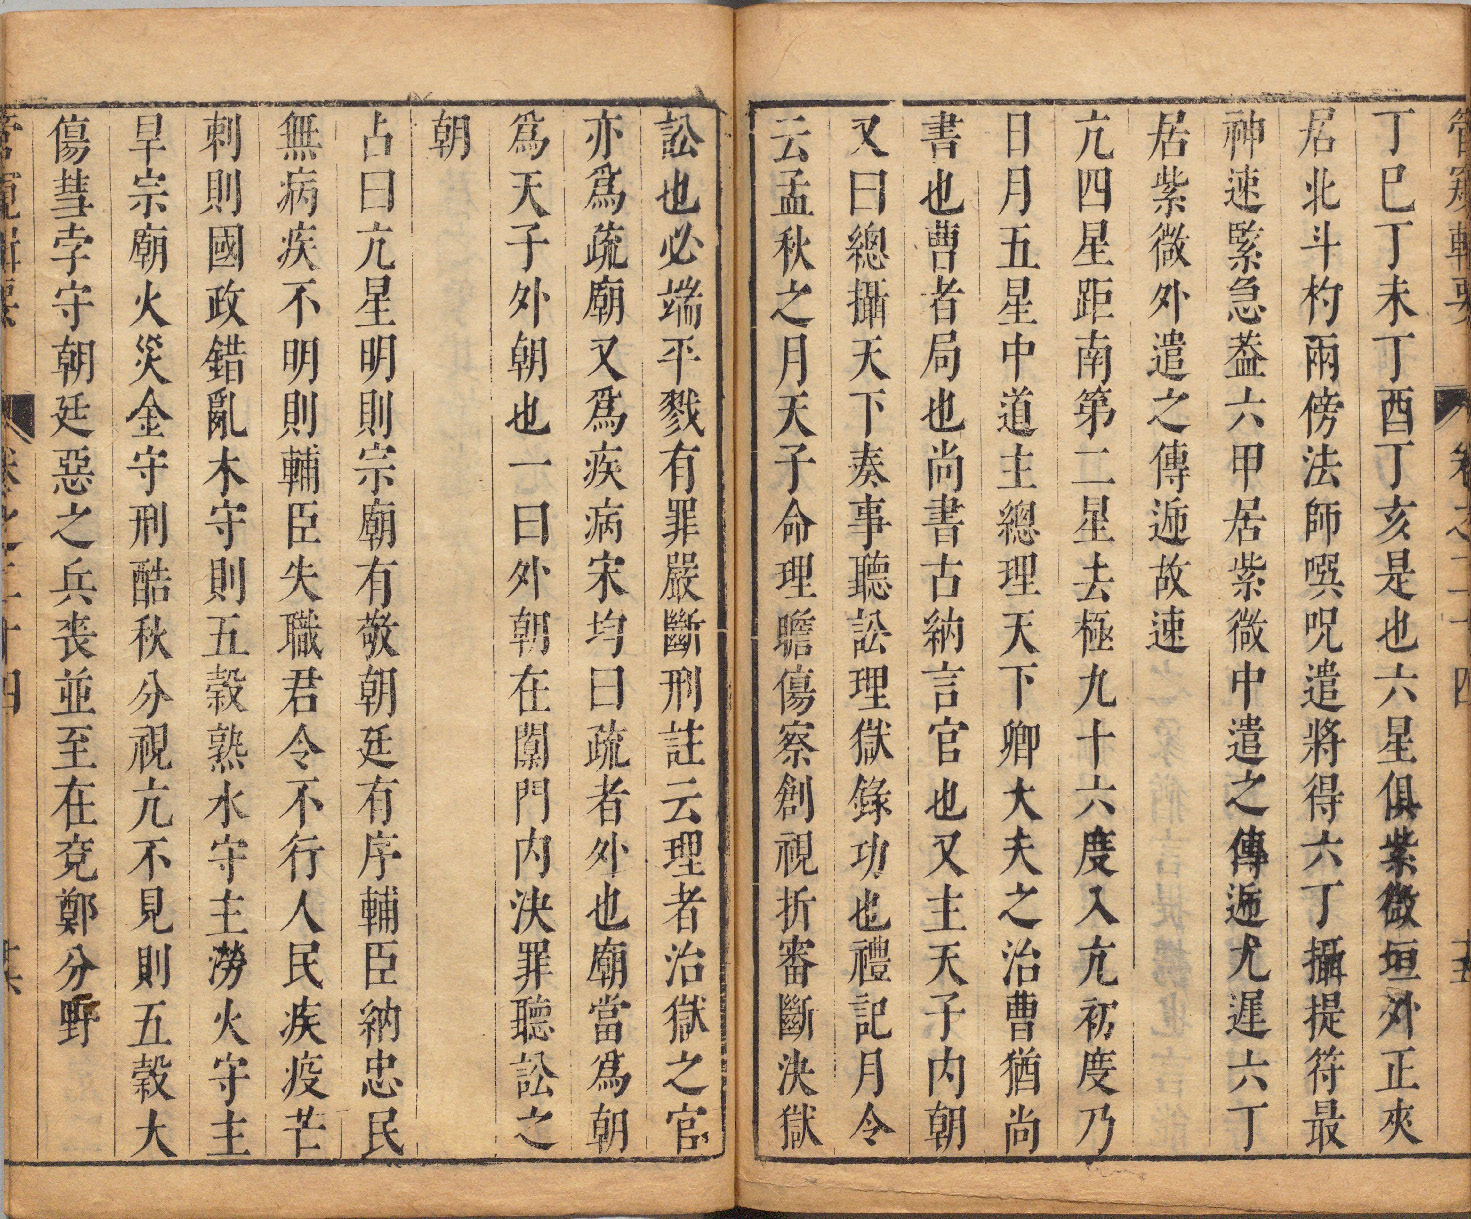 管窺輯要 卷之二十四 十五
丁巳丁未丁酉丁亥是也六星俱紫微垣外正夾
居北斗杓兩傍法師噀呪遣將得六丁攝提符最
神速緊急葢六甲居紫微中遣之傳遞尤遲六丁
居紫微外遣之傳遞故速
亢四星距南第二星去極九十六度入亢初度乃
日月五星中道主總理天下卿大夫之治曹猶尚
書也曹者局也尚書古納言官也又主天子内朝
又曰總攝天下奏事聽訟理獄錄功也禮記月令
云孟秋之月天子命理瞻傷察創視折審斷決獄
訟也必端平戮有罪嚴斷刑註云理者治獄之官
亦爲疏廟又爲疾病宋均曰疏者外也廟當爲朝
爲天子外朝也一曰外朝在闈門内決罪聽訟之
朝
占曰亢星明則宗廟有敬朝廷有序輔臣納忠民
無病疾不明則輔臣失職君令不行人民疾疫芒
刺則國政錯亂木守則五穀熟水守主澇火守主
旱宗廟火災金守刑酷秋分視亢不見則五穀大
傷彗孛守朝廷惡之兵喪並至在兗鄭分野
管窺輯要 卷之二十四 十六